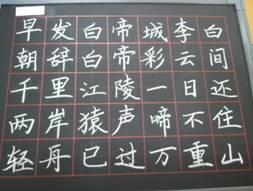 早发白帝城李白
朝辞白帝彩云间
千里江陵一日还
两岸猿声啼不住
轻舟已过万重山